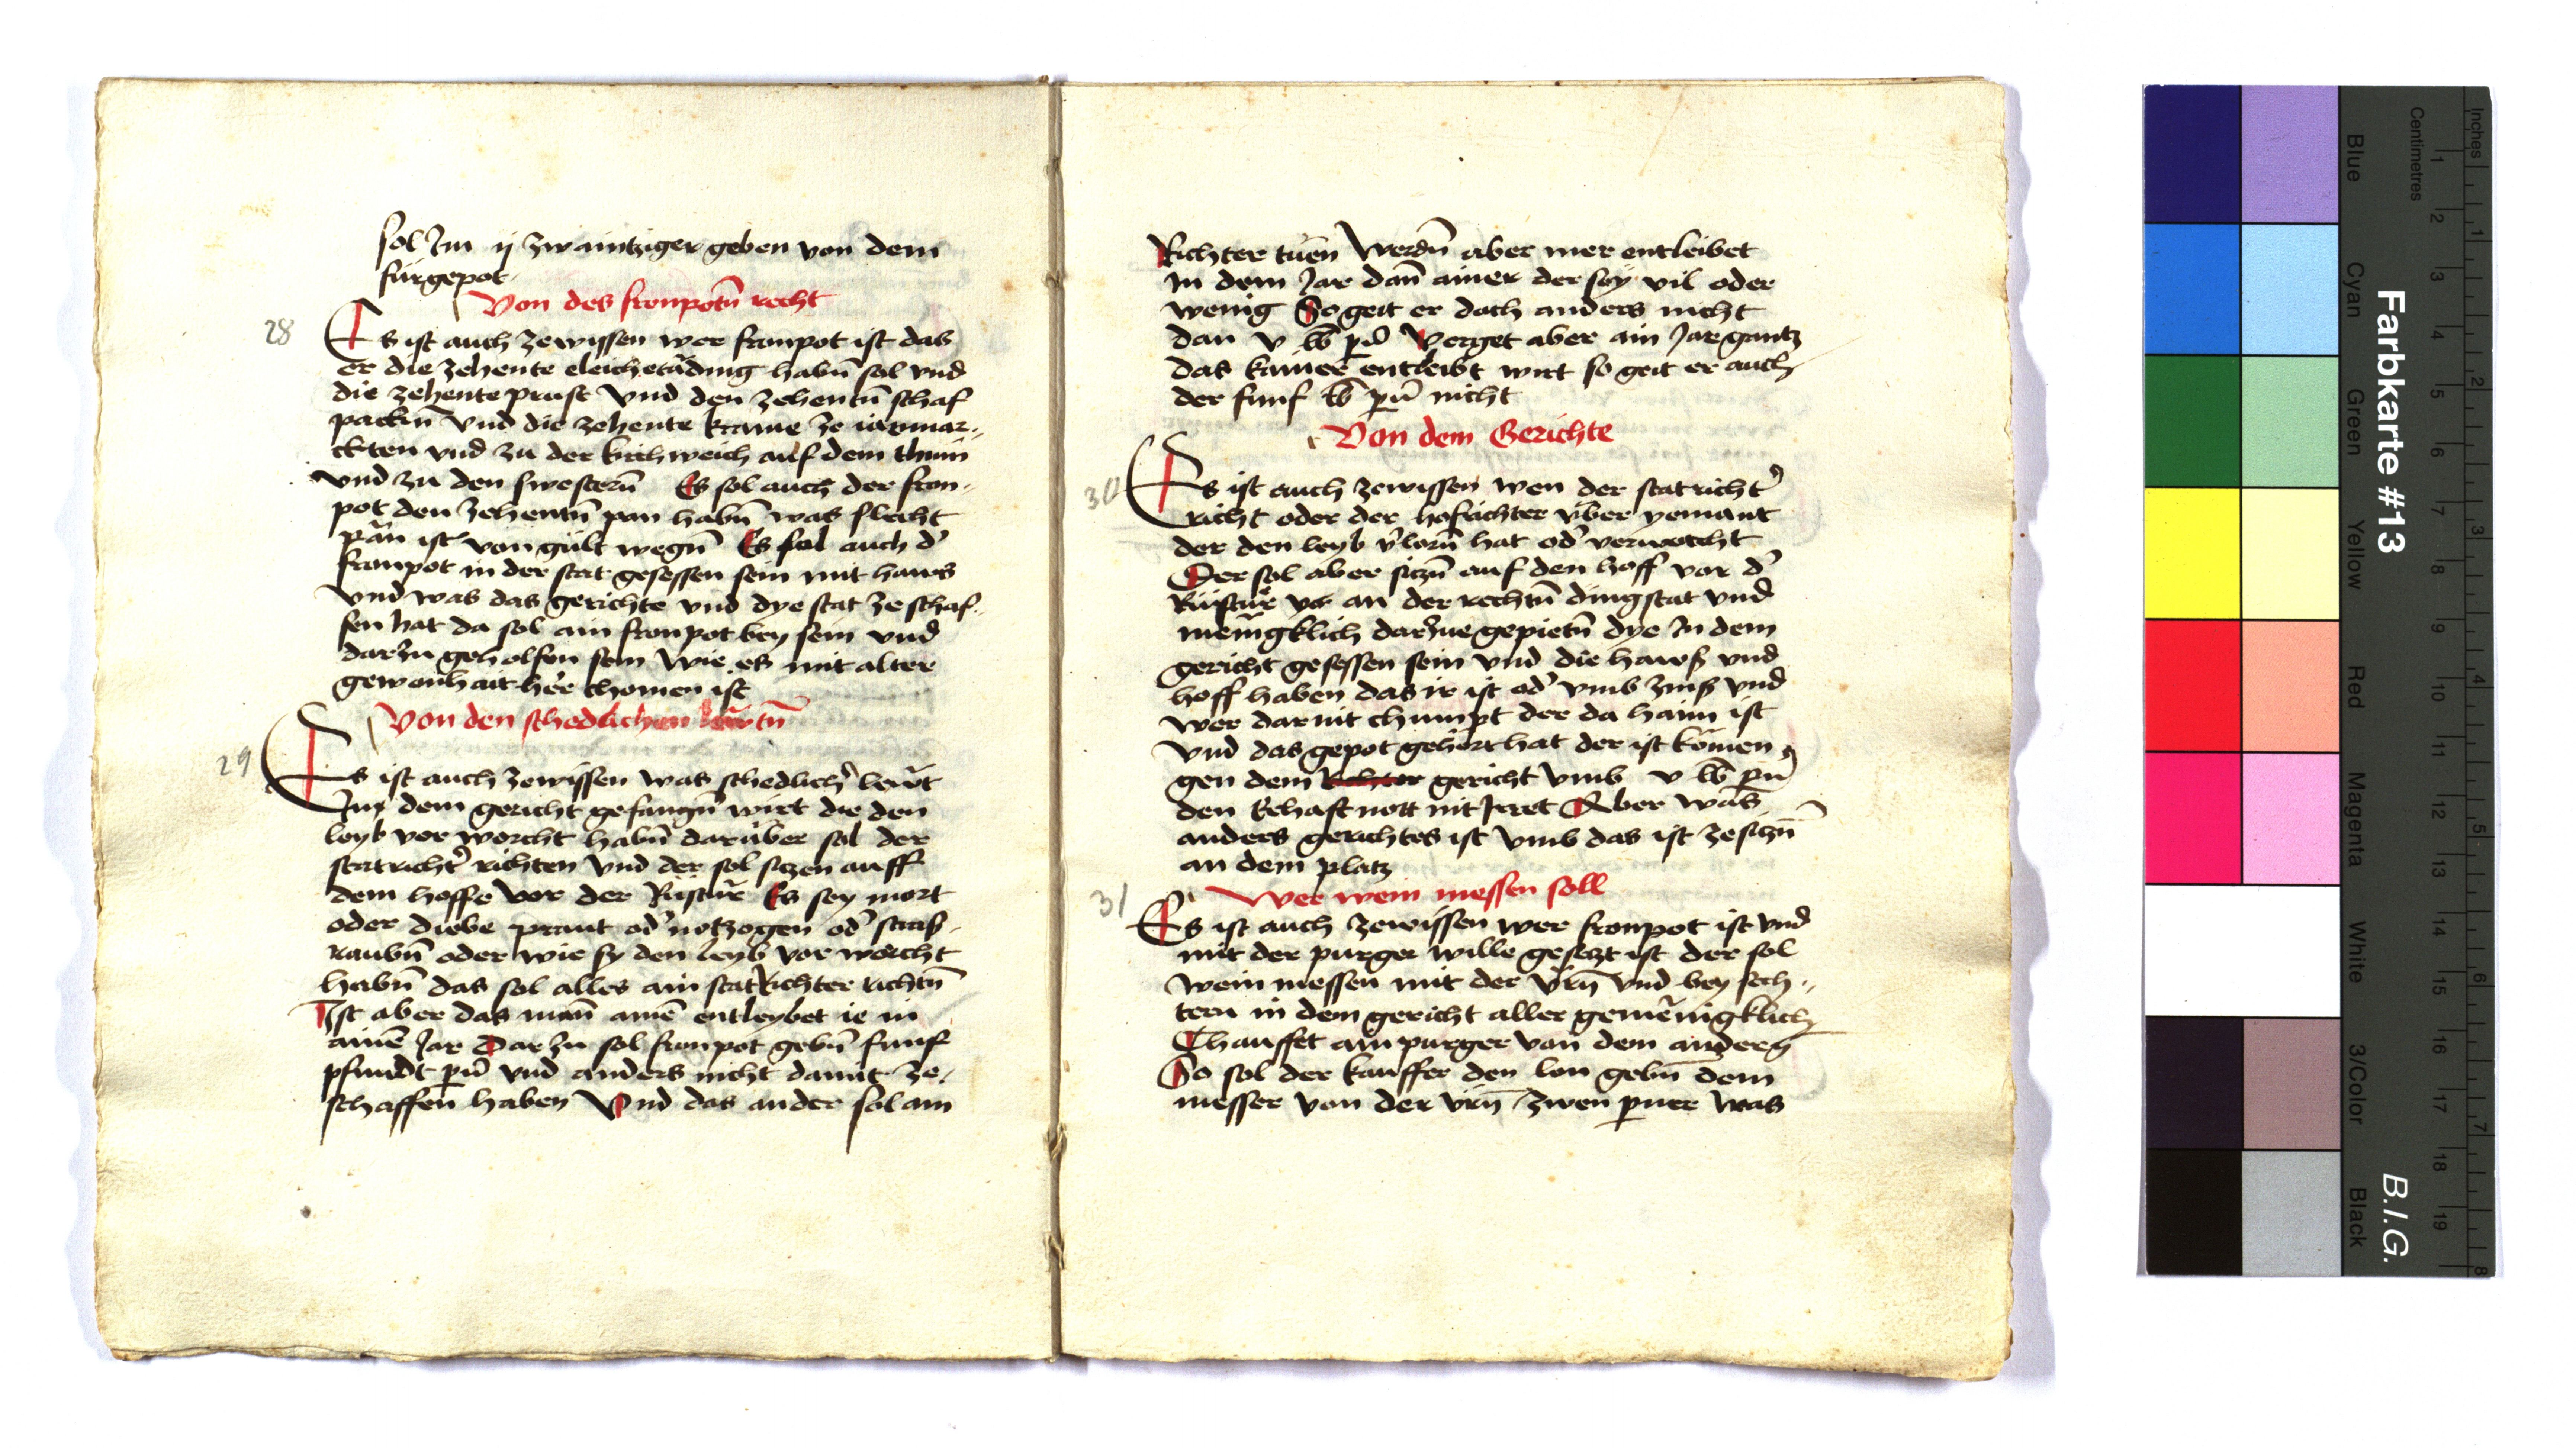 sol Im ij zwaintziger geben von dem
fürgepot
Von des fronpotn̄ recht
28
Es ist auch zewissen wer fronpot ist das
er die zehente eleichetäding habn̄ sol vnd
die zehente prust Vnd den zehentn̄ schaf
packn̄ Vnd die zehente krame ze iarmar-
ckten vnd zu der kirchweich auf dem thum
vnd zu den swestern̄ Es sol auch der fron-
pot den zehentn̄ pan habn̄ was slecht
pān ist von gült wegn̄ Es sol auch d'
fronpot in der stat gesessen sein mit haws
Vnd was das gerichte vnd dye stat ze schaf-
fen hat da sol ain fronpot bey sein vnd
darzu geholfen sein wie es mit alter
gewonhait her chomen ist
Von den schedlichen lewtn̄
29
Es ist auch zewissen was schedlich' lewt
Inn dem gericht gefangn̄ wirt die den
leyb vor worcht habn̄ darüber sol der
statricht' richten Vnd der sol sitzen auff
dem hoffe vor der Rustur Es sey mort
oder diebe prant od' notzogen od' stras-
raubn̄ oder wie sy den leyb vor worcht
habn̄ das sol alles ain statRichter richtn̄
Ist aber das man̄ ainē entleybet ie in
ainē Jar Dar zu sol fronpot gebn̄ funf
pfundt pn̄ vnd anders nicht damit ze-
schaffen haben Vnd das ander sol ain
Richter tuen Werdn̄ aber mer entleibet
In dem Jar dan̄ ainer der sey vil oder
wenig So geit er doch anders nicht
dan v lb pn̄ Verget aber ain Jar gantz
das kainer entleibt wirt so geit er auch
der funf lb pn̄ nicht
Von dem Gerichte
30
Es ist auch zewissen wen der statricht'
richt oder der hofrichter vber yemant
der den leyb v'lorn̄ hat od' verworcht
Der sol aber sitzn̄ auf den hoff vor d'
Rustur vor an der rechtn̄ dingstat vnd
menigklich darzue gepietn̄ dye In dem
gericht gesessen sein vnd die haws vnd
hoff haben das ir ist od' vmb zins vnd
wer dar nit chumpt der da haim ist
Vnd das gepot gehört hat der ist kömen
gen dem Richter gericht Vmb v lb pn̄
den Rehaft nott nit Irret Aber was
anders gerichtes ist Vmb das ist ze sitzn̄
an dem platz
Wer wein messen soll
31
Es ist auch zewissen wer fronpot ist vnd
mit der purger wille gesetzt ist der sol
wein messen mit der Vrn̄ Vnd bey sech-
tern in dem gericht aller gemēnigklich
Chauffet ain purger van dem andern̄
So sol der kauffer den lon gebn̄ dem
messer von der vrn̄ zwen pner was
Farbkarte #13
B.I.G.
Inches
1 2 3 4 5 6 7 8
Centimetres
1 2 3 4 5 6 7 8 9 10 11 12 13 14 15 16 17 18 19
Blue
Cyan
Green
Yellow
Red
Magenta
White
3/Color
Black